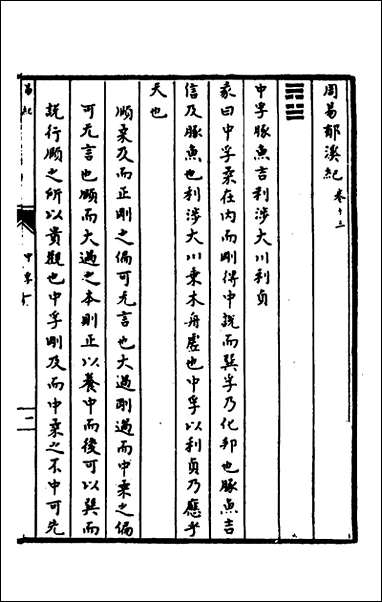 周易郁溪紀 卷十三
中孚豚魚吉利涉大川利貞
彖曰中孚柔在內而剛得中說而巽孚乃化邦也豚魚吉
信及豚魚也利涉大川乗木舟虛也中孚以利貞乃應乎
天也
順柔及而正剛之偏可无言也大過剛過而中柔之偏
可无言也頤而大過之本則正以養中而後可以巽而
說行順之所以貴觀也中孚剛及而中柔之不中可先
易紀
中孚
一